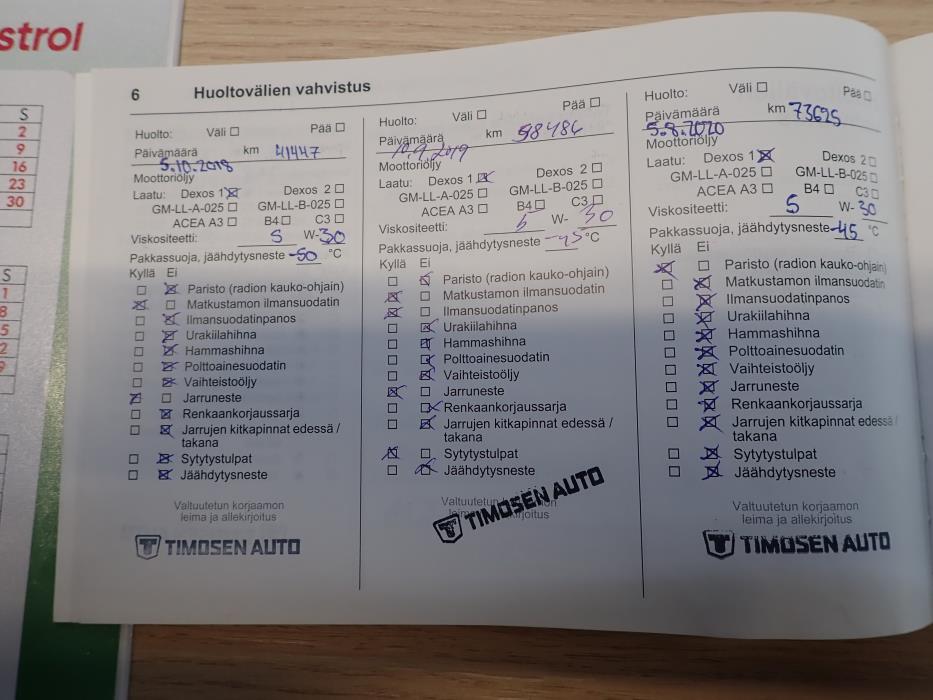 strol
S
2
9
16
23
30
S
1
8
5
2
9
6 Huoltovälien vahvistus
Huolto: Väli ☐ Pää ☐
Päivämäärä km 41447
5.10.2018
Moottoriöljy
Laatu: Dexos 1 ☒ Dexos 2 ☐
GM-LL-A-025 ☐ GM-LL-B-025 ☐
ACEA A3 ☐ B4 ☐ C3 ☐
Viskositeetti: 5 W-30
Pakkassuoja, jäähdytysneste -50 °C
Kyllä Ei
☐ ☒ Paristo (radion kauko-ohjain)
☒ ☐ Matkustamon ilmansuodatin
☐ ☒ Ilmansuodatinpanos
☐ ☒ Urakiilahihna
☐ ☒ Hammashihna
☐ ☒ Polttoainesuodatin
☐ ☒ Vaihteistoöljy
☒ ☐ Jarruneste
☐ ☒ Renkaankorjaussarja
☐ ☒ Jarrujen kitkapinnat edessä /
takana
☐ ☒ Sytytystulpat
☐ ☒ Jäähdytysneste
Valtuutetun korjaamon
leima ja allekirjoitus
TIMOSEN AUTO
Huolto: Väli ☐ Pää ☐
Päivämäärä km 58486
10.9.2019
Moottoriöljy
Laatu: Dexos 1 ☒ Dexos 2 ☐
GM-LL-A-025 ☐ GM-LL-B-025 ☐
ACEA A3 ☐ B4 ☐ C3 ☐
Viskositeetti: 5 W-30
Pakkassuoja, jäähdytysneste -45 °C
Kyllä Ei
☐ ☒ Paristo (radion kauko-ohjain)
☒ ☐ Matkustamon ilmansuodatin
☒ ☐ Ilmansuodatinpanos
☐ ☒ Urakiilahihna
☐ ☒ Hammashihna
☐ ☒ Polttoainesuodatin
☐ ☒ Vaihteistoöljy
☒ ☐ Jarruneste
☐ ☒ Renkaankorjaussarja
☐ ☒ Jarrujen kitkapinnat edessä /
takana
☒ ☐ Sytytystulpat
☐ ☒ Jäähdytysneste
Valtuutetun korjaamon
leima ja allekirjoitus
TIMOSEN AUTO
Huolto: Väli ☐ Pää ☐
Päivämäärä km 73625
5.8.2020
Moottoriöljy
Laatu: Dexos 1 ☒ Dexos 2 ☐
GM-LL-A-025 ☐ GM-LL-B-025 ☐
ACEA A3 ☐ B4 ☐ C3 ☐
Viskositeetti: 5 W-30
Pakkassuoja, jäähdytysneste -45 °C
Kyllä Ei
☒ ☐ Paristo (radion kauko-ohjain)
☐ ☒ Matkustamon ilmansuodatin
☐ ☒ Ilmansuodatinpanos
☐ ☒ Urakiilahihna
☐ ☒ Hammashihna
☐ ☒ Polttoainesuodatin
☐ ☒ Vaihteistoöljy
☐ ☒ Jarruneste
☐ ☒ Renkaankorjaussarja
☐ ☒ Jarrujen kitkapinnat edessä /
takana
☐ ☒ Sytytystulpat
☐ ☒ Jäähdytysneste
Valtuutetun korjaamon
leima ja allekirjoitus
TIMOSEN AUTO